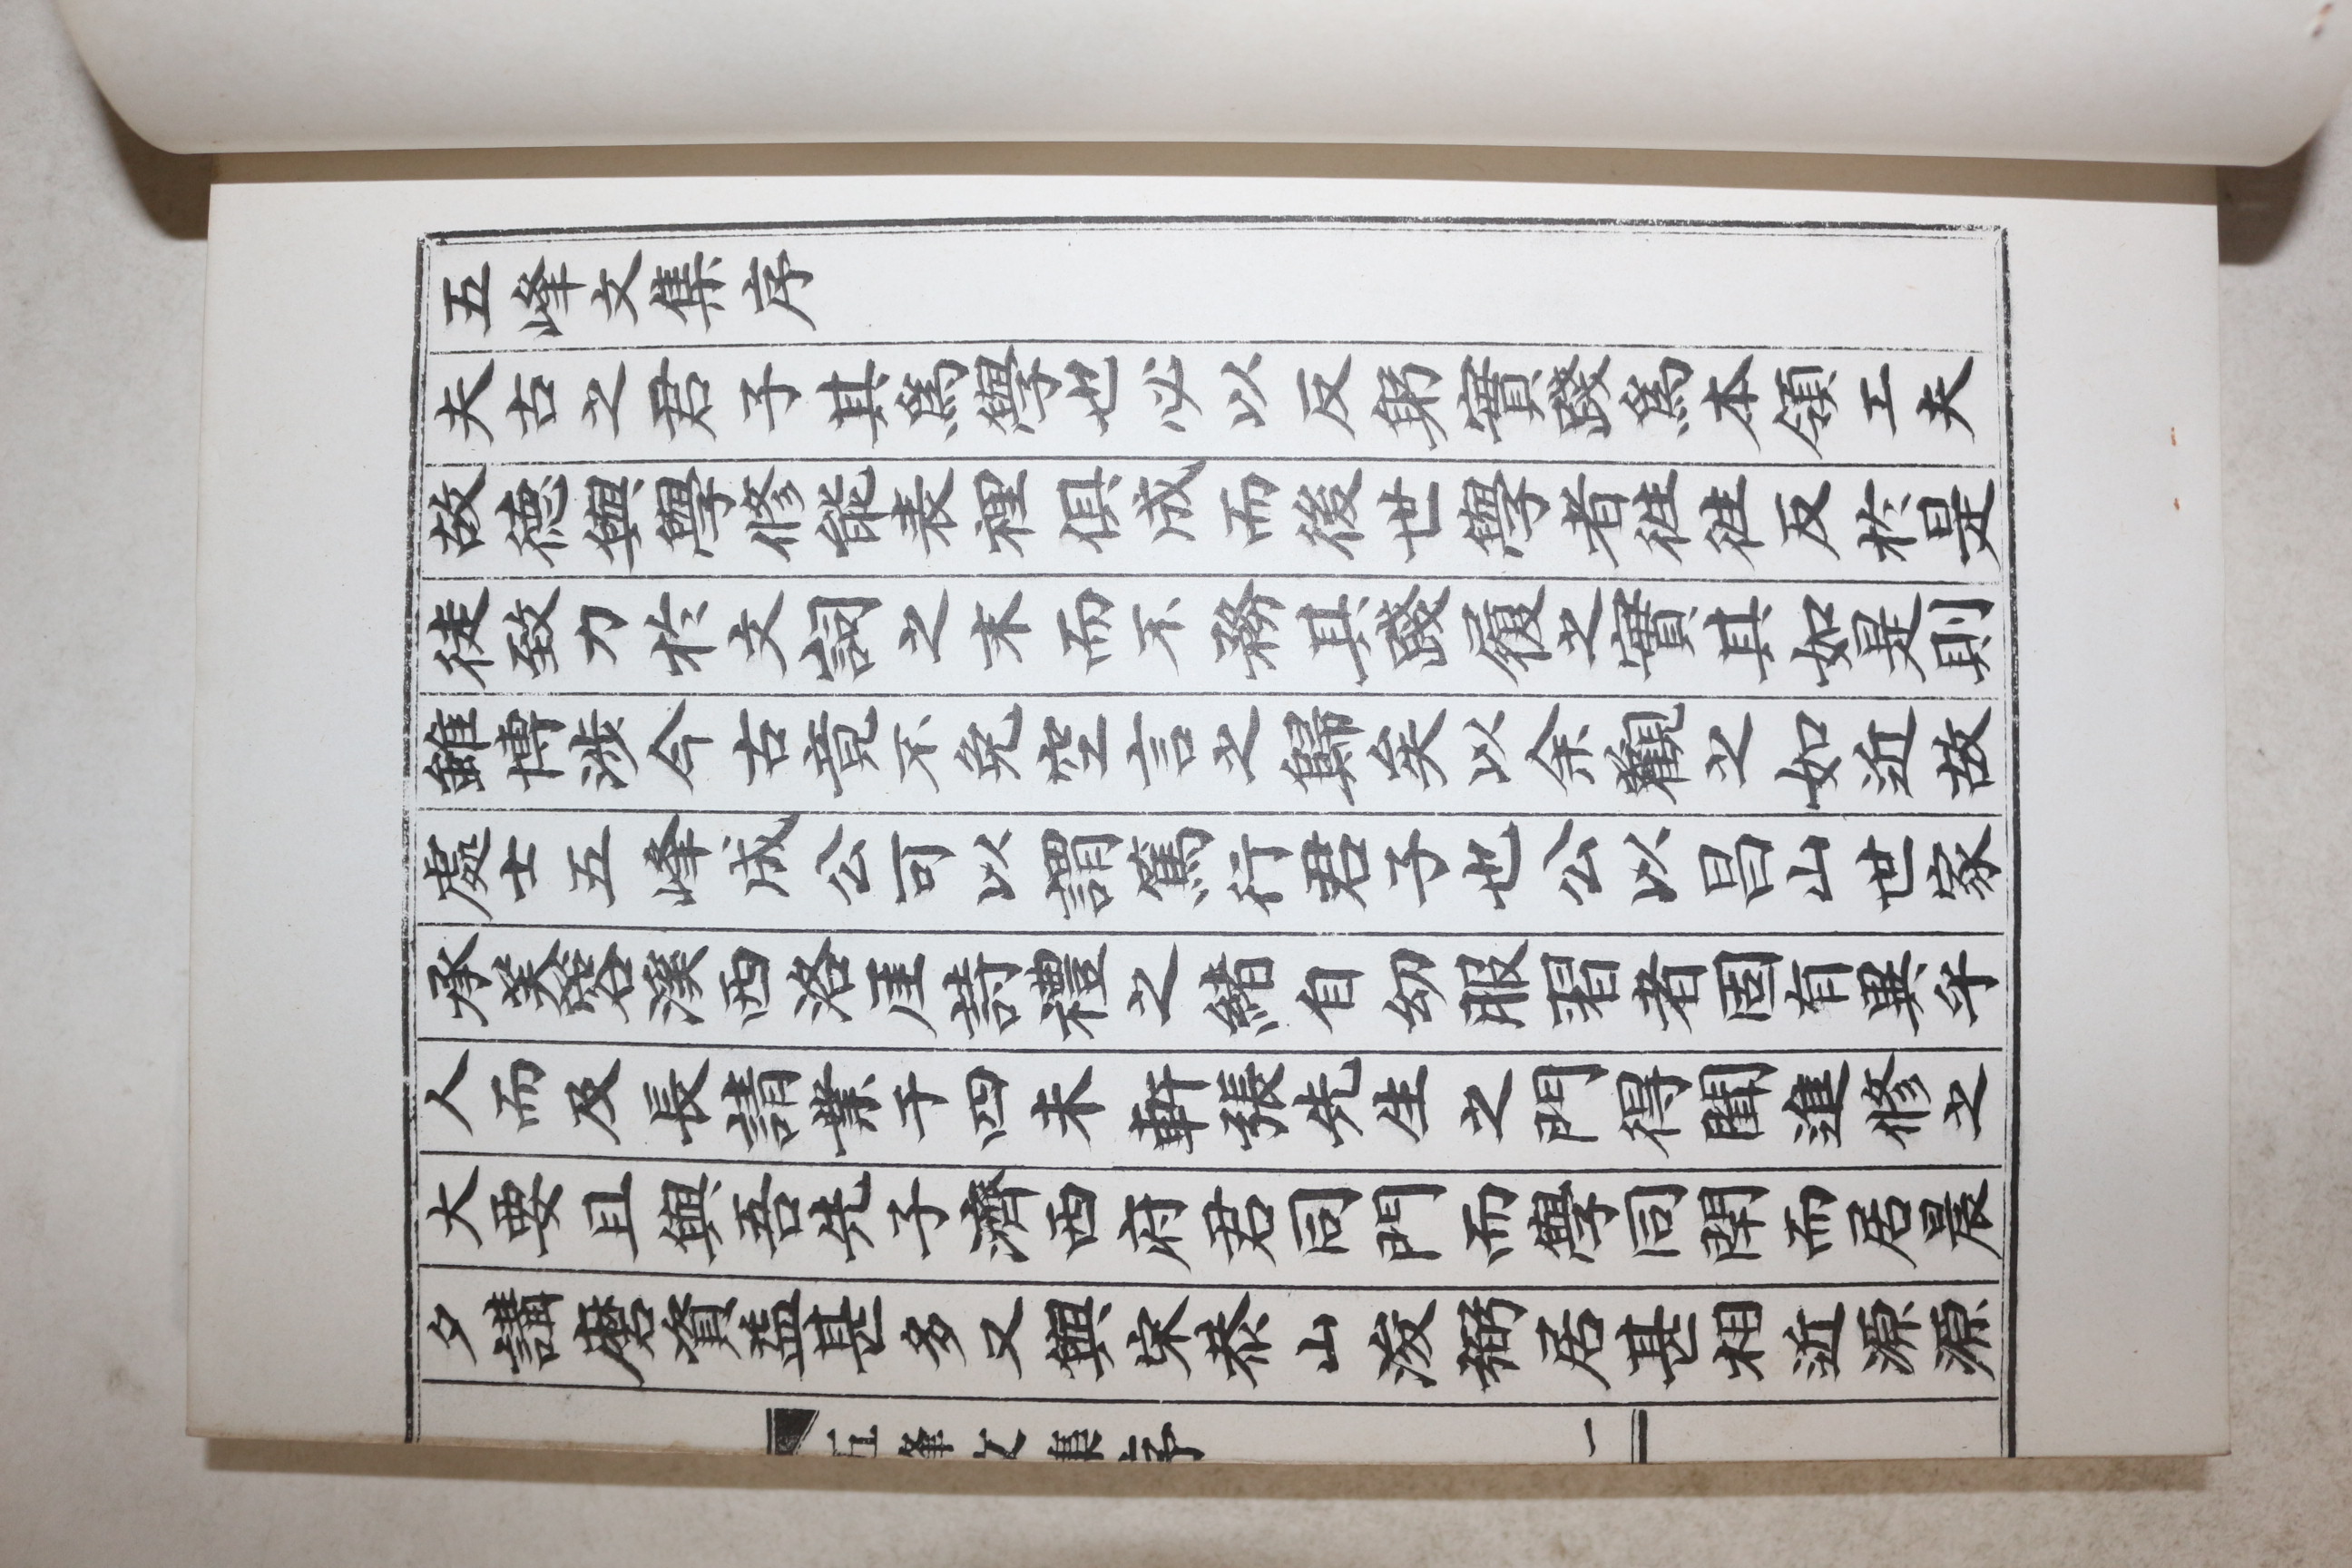 五峰文集序
夫古之君子其爲學也必以反躬實踐爲本領工夫
故德與學修能表裡俱成而後世學者徃徃反於是
徒致力於文詞之末而不務其踐履之實其如是則
雖博涉今古竟不免空言之歸矣以余觀之如近故
處士五峰成公可以謂篤行君子也公以昌山世家
承芙蓉溪西洛厓詩禮之緖自幼服習者固有異乎
人而及長請業于四未軒張先生之門得聞進修之
大要且與吾先子濟西府君同門而學同閈而居晨
夕講磨資益甚多又與宋恭山浚弼居甚相近源源
五峰文集序 一